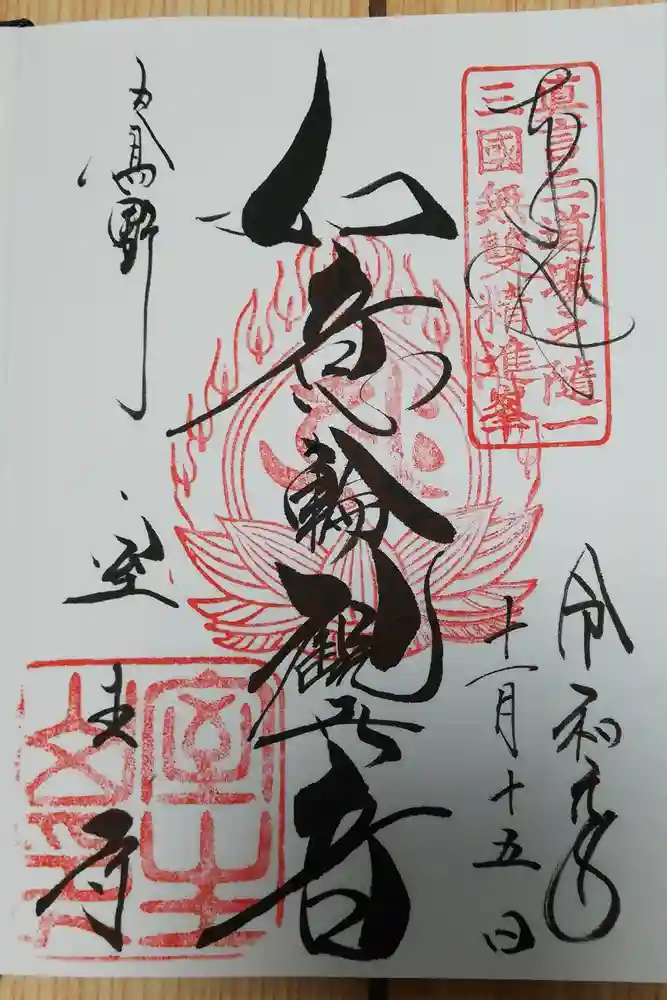 奉拝
真言三道場之隨一
三國無雙精進峯
令和元年
十一月十五日
如意輪観世音
女人高野
室生寺